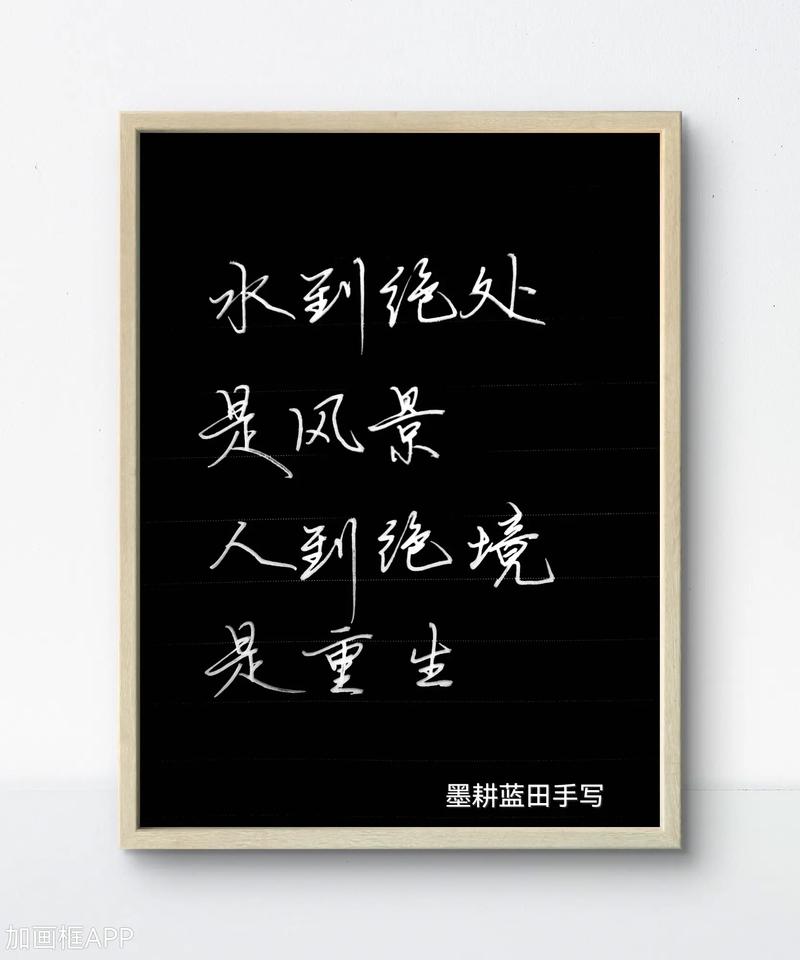 水到绝处
是风景
人到绝境
是重生
墨耕蓝田手写
加画框APP